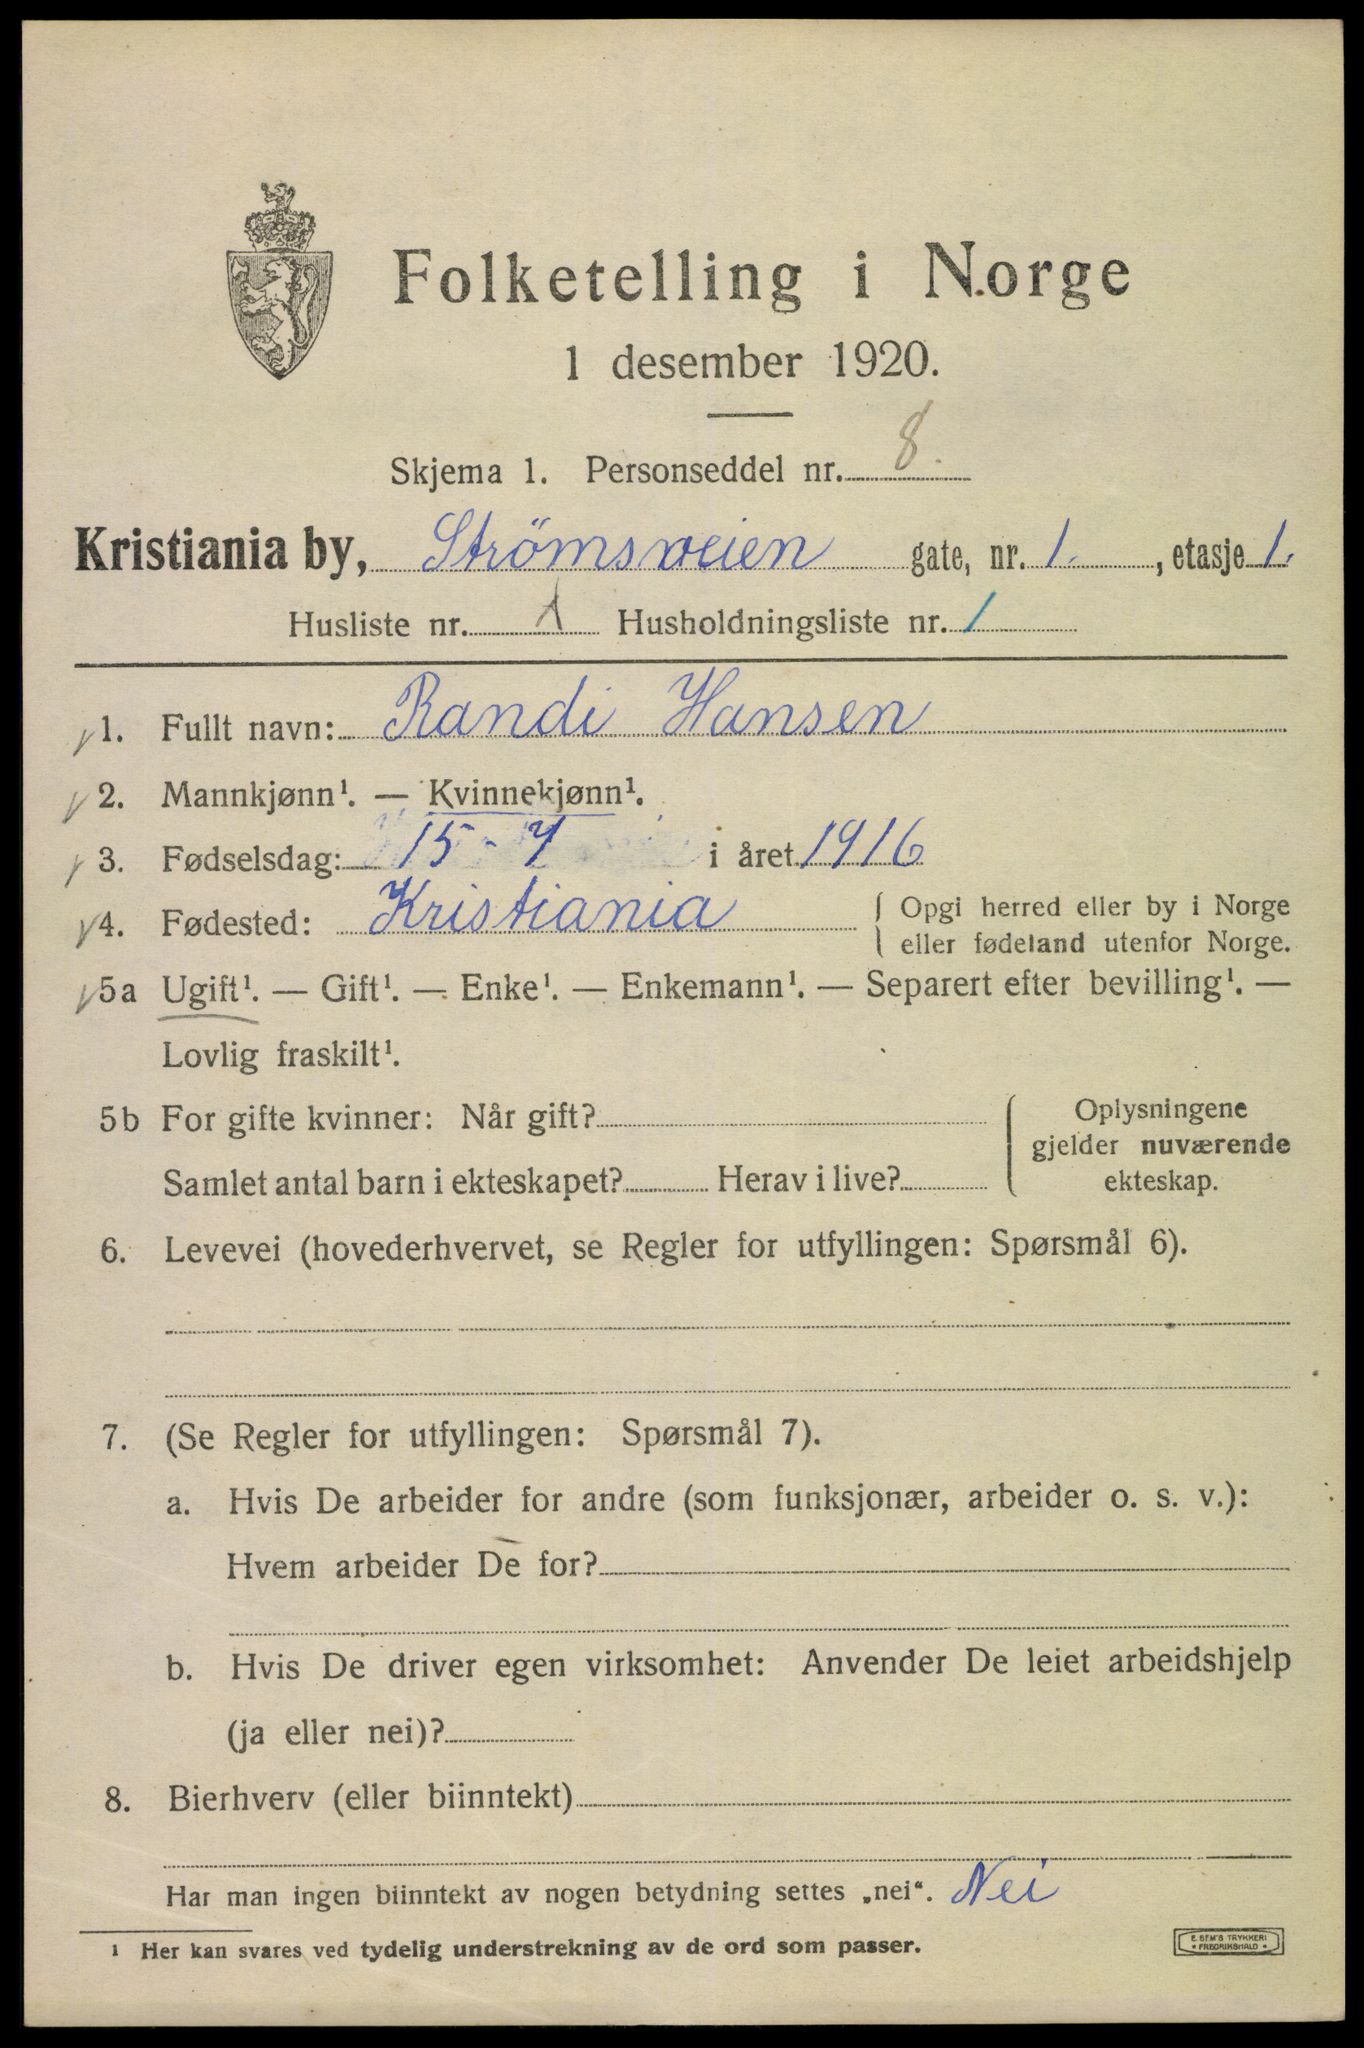 Folketelling i Norge
1 desember 1920.
Skjema 1. Personseddel nr. 8.
Kristiania by, Strömsveien gate, nr. 1. , etasje 1.
Husliste nr. 1 Husholdningsliste nr. 1
1. Fullt navn: Randi Hansen
2. Mannkjønn¹. — Kvinnekjønn¹.
3. Fødselsdag: 15-7 i året 1916
4. Fødested: Kristiania { Opgi herred eller by i Norge
eller fødeland utenfor Norge.
5a Ugift¹. — Gift¹. — Enke¹. — Enkemann¹. — Separert efter bevilling¹. —
Lovlig fraskilt¹.
5b For gifte kvinner: Når gift?
Samlet antal barn i ekteskapet? Herav i live?
Oplysningene
gjelder nuværende
ekteskap.
6. Levevei (hovederhvervet, se Regler for utfyllingen: Spørsmål 6).
7. (Se Regler for utfyllingen: Spørsmål 7).
a. Hvis De arbeider for andre (som funksjonær, arbeider o. s. v.):
Hvem arbeider De for?
b. Hvis De driver egen virksomhet: Anvender De leiet arbeidshjelp
(ja eller nei)?
8. Bierhverv (eller biinntekt)
Har man ingen biinntekt av nogen betydning settes „nei“. Nei
¹ Her kan svares ved tydelig understrekning av de ord som passer.
E. SEM'S TRYKKERI
• FREDRIKSHALD •